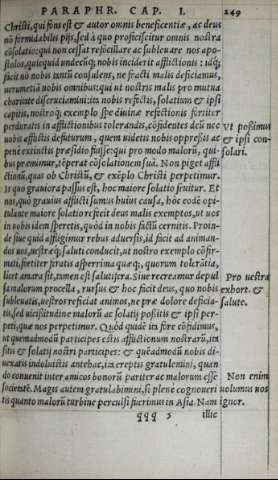 PARAPHR. CAP. I. 249
Christi, qui fons est & autor omnis beneficentiæ, ac deus
nõ formidabilis pijs, sed à quo proficiscitur omnis nostra
cõsolatio: qui non cessat refocillare ac subleuare nos apo-
stolos, quicquid undecũq; nobis inciderit afflictionis: idq́;
facit nõ nobis tantũ consulens, ne fracti malis deficiamus,
uerumetiã nobis omnibus: qui ut nostris malis pro mutua
charitate discruciamini: ita nobis refectis, solatium & ipsi
capitis, nostroq; exemplo spe diuinæ refectionis fortiter
perduratis in afflictionibus tolerandis, cõfidentes dcũ nec
uobis afflictis defuturum, quem uidetis nobis oppressis ac
penè extinctis præsidio fuisse: qui pro modo malorũ, qui-
bus premimur, tẽperat cõsolationem suã. Non piget affli
ctionũ, quas ob Christũ, & exẽplo Christi perpetimur.
Is quo grauiora passus est, hoc maiore solatio fruitur. Et
nos, quo grauius afflicti sumus huius causa, hoc eodẽ opi-
tulante maiore solatio reficit deus malis exemptos, ut uos
in nobis idem speretis, quod in nobis factũ cernitis. Proin-
de siue quid affligimur rebus aduersis, id facit ad animan-
dos uos, uestræq; saluti conducit, ut nostro exemplo cõfir-
mati, fortiter feratis asperrima quæq;, quorum tolerãtia,
licet amara sit, tamen est salutifera. Siue recreamur depul
sa malorum procella, rursus & hoc facit deus, quo nobis
subleuatis, uestros reficiat animos, ne præ dolore deficia-
tis, sed uicissitudine malorũ ac solatij positis & ipsi per-
peti, quæ nos perpetimur. Quòd quidẽ ita fore cõfidimus,
ut quemadmodũ participes estis afflictionum nostrarũ, ita
sitis & solatij nostri participes: & quẽadmodũ nobis di-
uexatis indoluistis antehac, ita ereptis gratulemini, quan
do conuenit inter amicos bonorũ pariter ac malorum esse
societatẽ. Magis autem gratulabimini, si plenè cognoueri
tis quanto malorũ turbine perculsi fuerimus in Asia. Nam
qqq 5 illic
Vt possimus
& ipsi con-
solari.
Pro uestra
exhort. &
salute.
Non enim
uolumus uos
ignor.